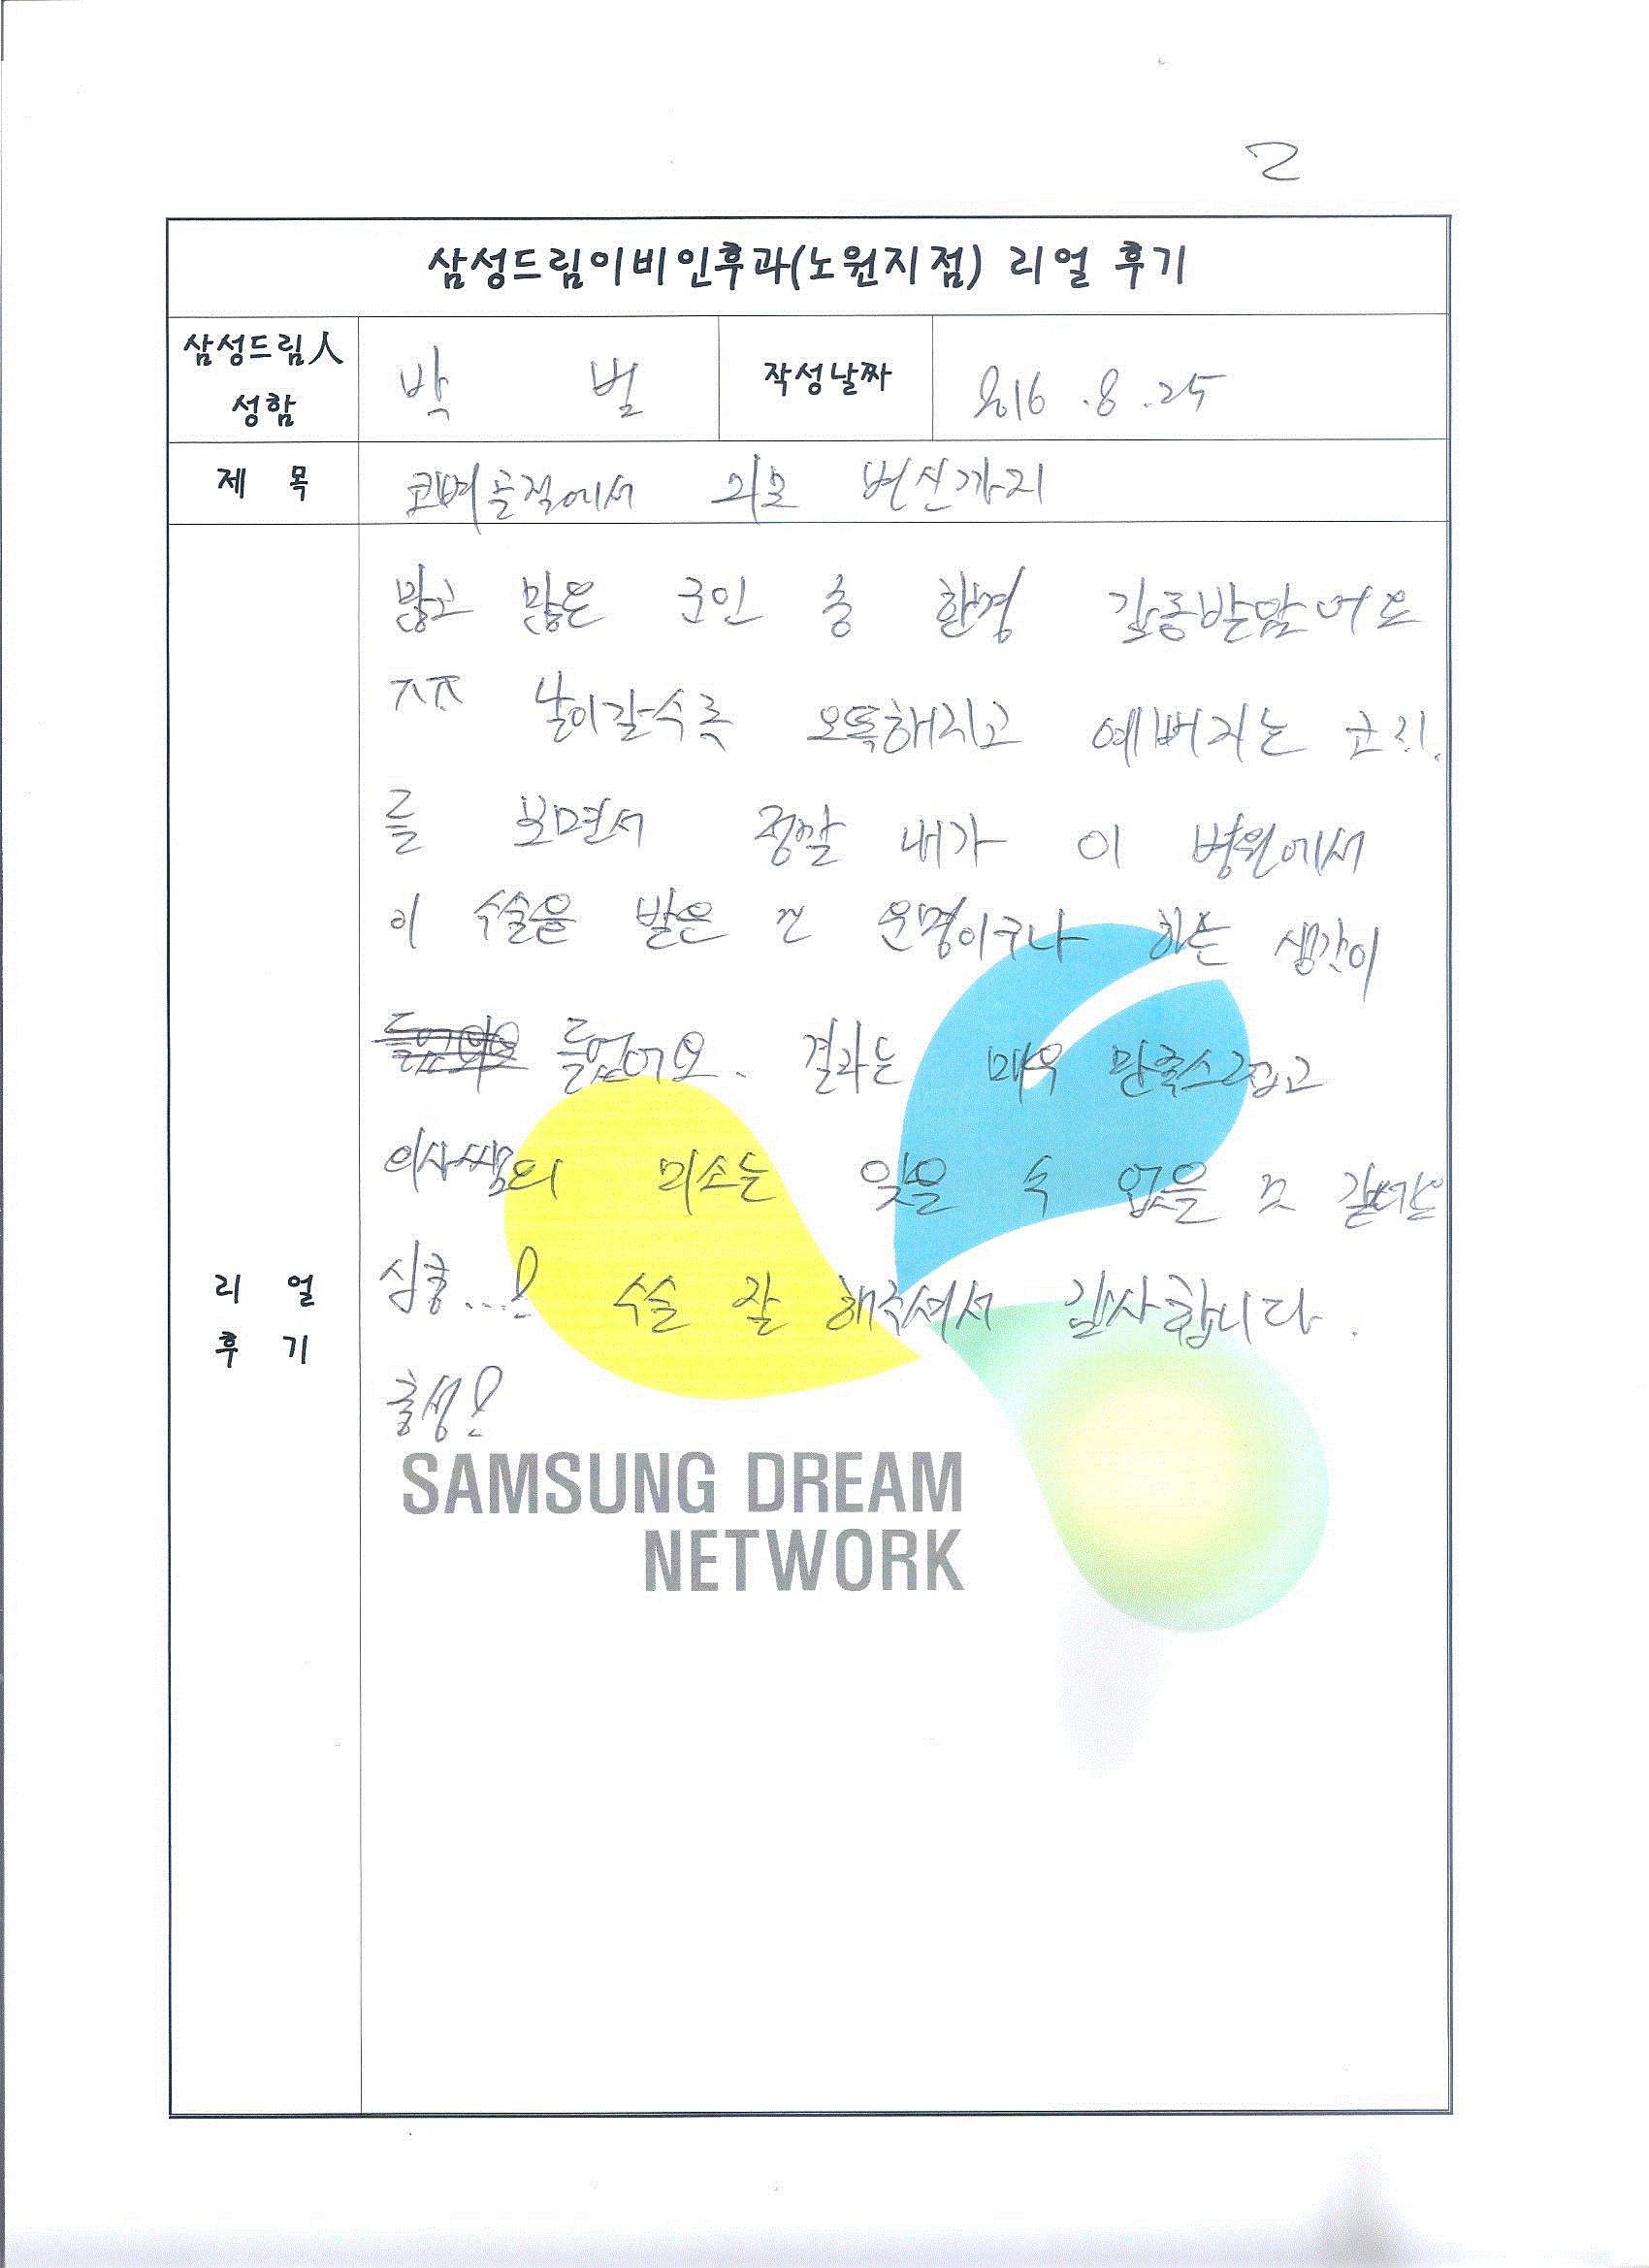 2
삼성드림이비인후과(노원지점) 리얼 후기
삼성드림人
성함
박 벌
작성날짜
2016.8.25
제 목
코뼈골절에서 외모 변신까지
많고 많은 군인 중 환경 받았어요
ㅠㅠ 날이갈수록 오똑해지고 예뻐지는
를 보면서 정말 내가 이 병원에서
이 수술을 받은 건 운명이구나 하는 생각이
들었어요. 결과는 매우 만족스럽고
의사쌤의 미소는 잊을 수 없을 것
심쿵...! 수술 잘 해주셔서 감사합니다.
충성!
리 얼
후 기
SAMSUNG DREAM
NETWORK